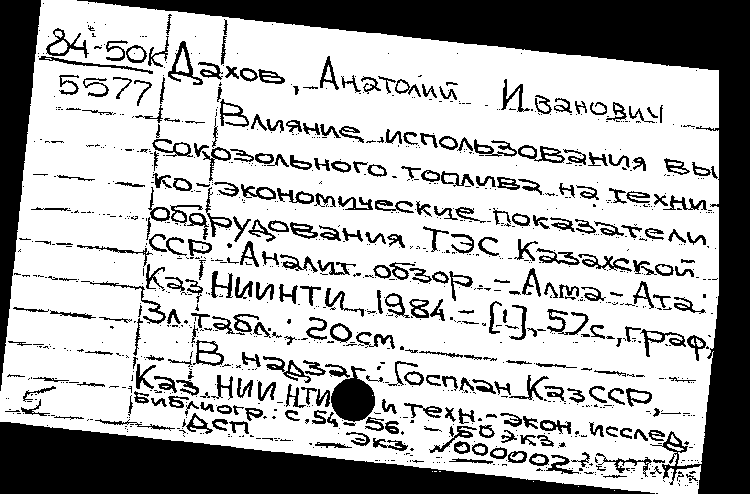 84-50к
5577
Дахов, Анатолий Иванович
Влияние использования вы
сокозольного топлива на техни-
ко-экономические показатели
оборудования ТЭС Казахской
ССР: Аналит. обзор. - Алма-Ата:
КазНИИНТИ, 1984. - [1], 57с., граф,
3л. табл.; 20см.
В надзаг.: Госплан КазССР,
Каз. НИИ НТИ и техн.-экон. исслед.
Библиогр.: с.54-56. - 150 экз.
ДСП
Экз. №000002
5